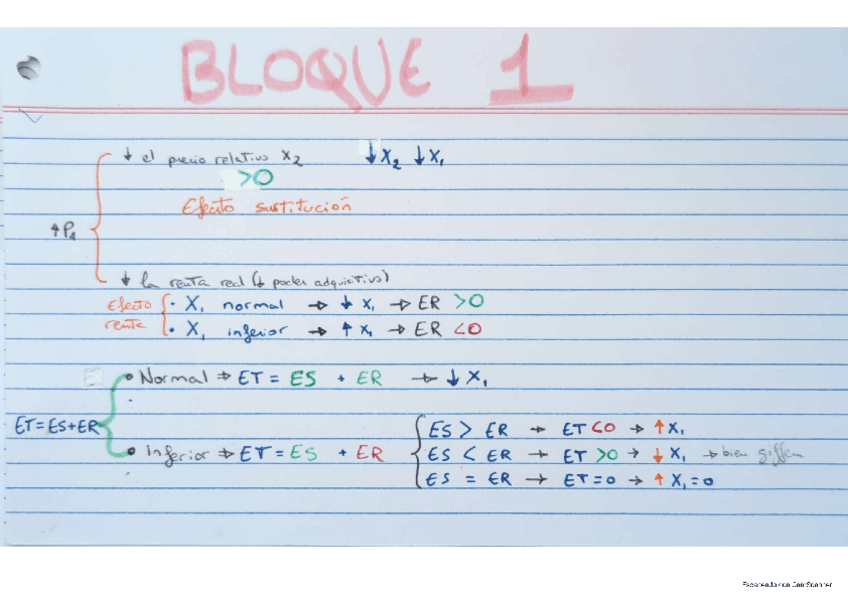 BLOQUE 1
↓ el precio relativo X2 ↓X2 ↓X1
>0
Efecto sustitución
↑P1
↓ la renta real (↓ poder adquictivo)
Efecto renta
· X1 normal → ↓ X1 → ER >0
· X1 inferior → ↑ X1 → ER <0
ET=ES+ER
• Normal ⇒ ET = ES + ER → ↓ X1
• Inferior ⇒ ET = ES + ER
ES > ER → ET <0 → ↑ X1
ES < ER → ET >0 → ↓ X1 → bien giffen
ES = ER → ET=0 → ↑ X1=0
Escaneado con CamScanner